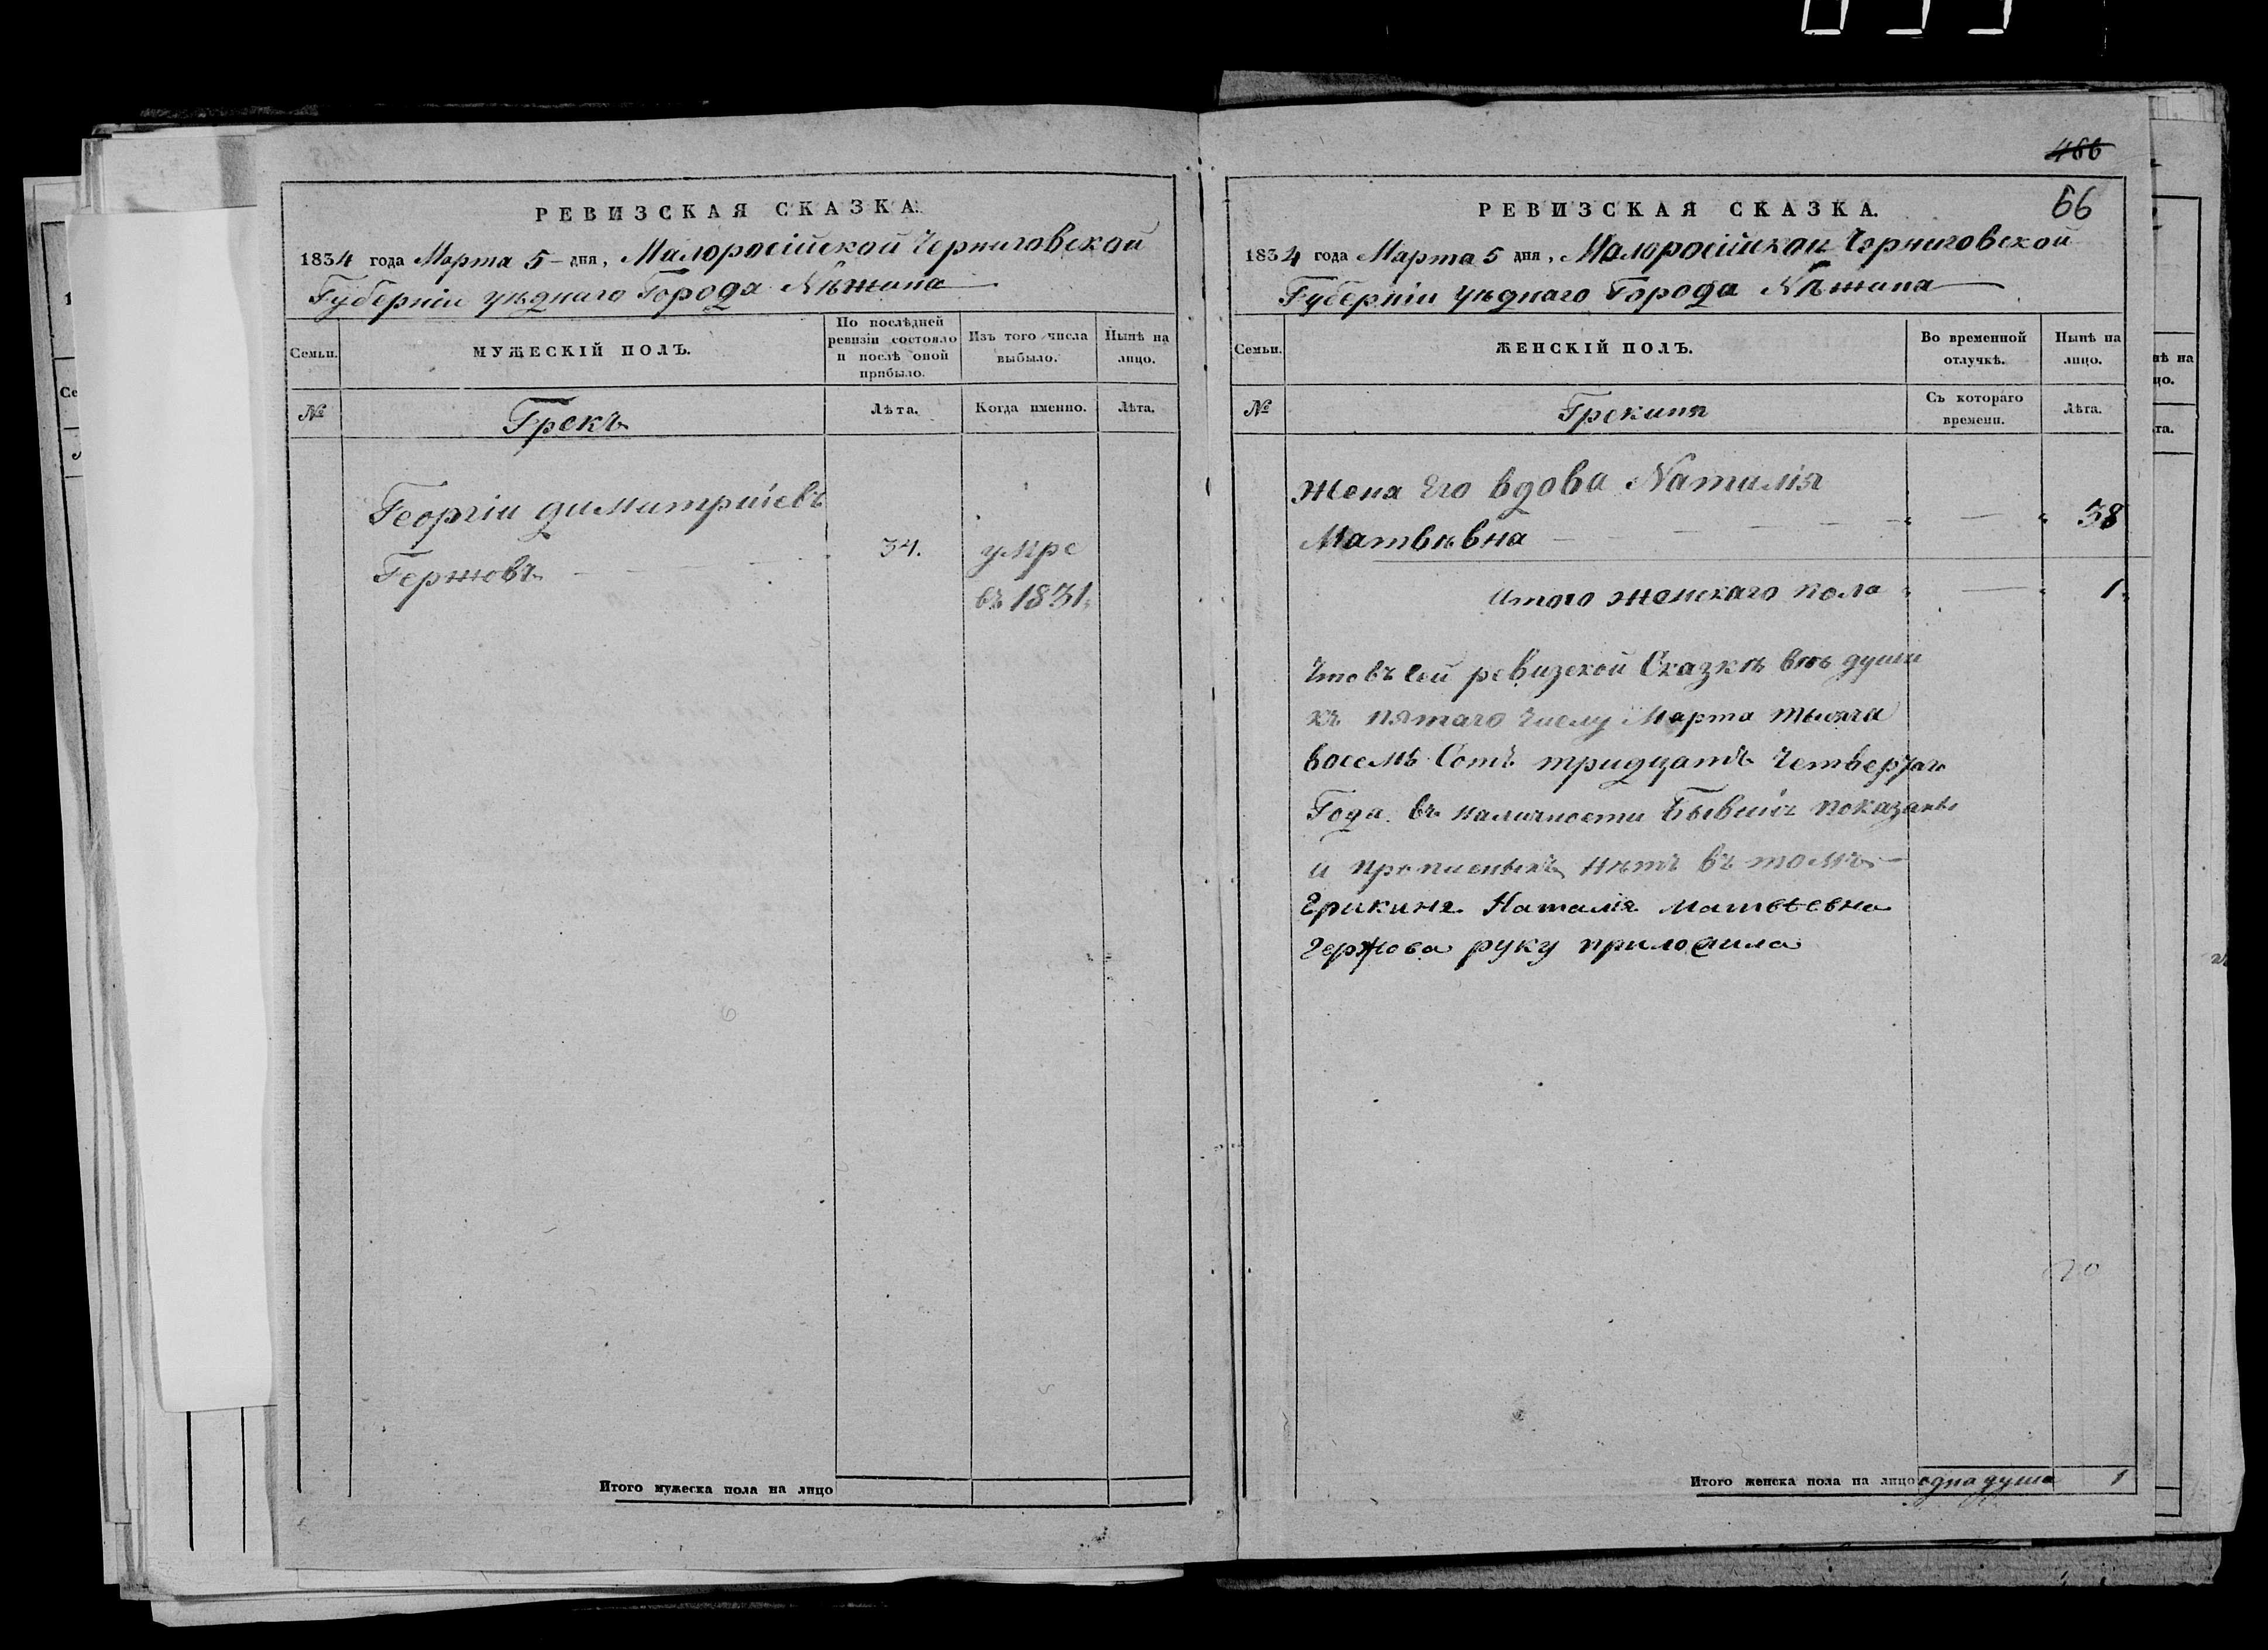 РЕВИЗСКАЯ СКАЗКА.
1834 года Марта 5 дня, Малоросійской Черниговской
Губерніи уѣднаго Города Нѣжина
Семьи.
МУЖЕСКІЙ ПОЛЪ.
По послѣдней ревизіи состояло и послѣ оной прибыло.
Изъ того числа выбыло.
Нынѣ на лицо.
№
Грекъ
Лѣта.
Когда именно.
Лѣта.
Георгіи димитріиевъ
Гержовъ
34.
умре
въ 1831.
Итого мужеска пола на лицо
486
66
РЕВИЗСКАЯ СКАЗКА.
1834 года Марта 5 дня, Малоросійской Черниговской
Губерніи уѣднаго Города Нѣжина
Семьи.
ЖЕНСКІЙ ПОЛЪ.
Во временной отлучкѣ.
Нынѣ на лицо.
№
Грекиня
Съ котораго времени.
Лѣта.
Жена Его вдова Наталія
Матвѣвна
38
Итого женскаго пола
1
Что въ Сей ревизской Сказкѣ всѣ души
къ пятаго числу Марта тысяча
восемь Сотъ тридцать Четвертаго
Года въ наличности Бывшіе показаны
и прописныхъ нѣтъ въ томъ
Грикиня Наталія Матвѣевна
Гержова руку приложила
20
Итого женска пола на лицо одна душа 1